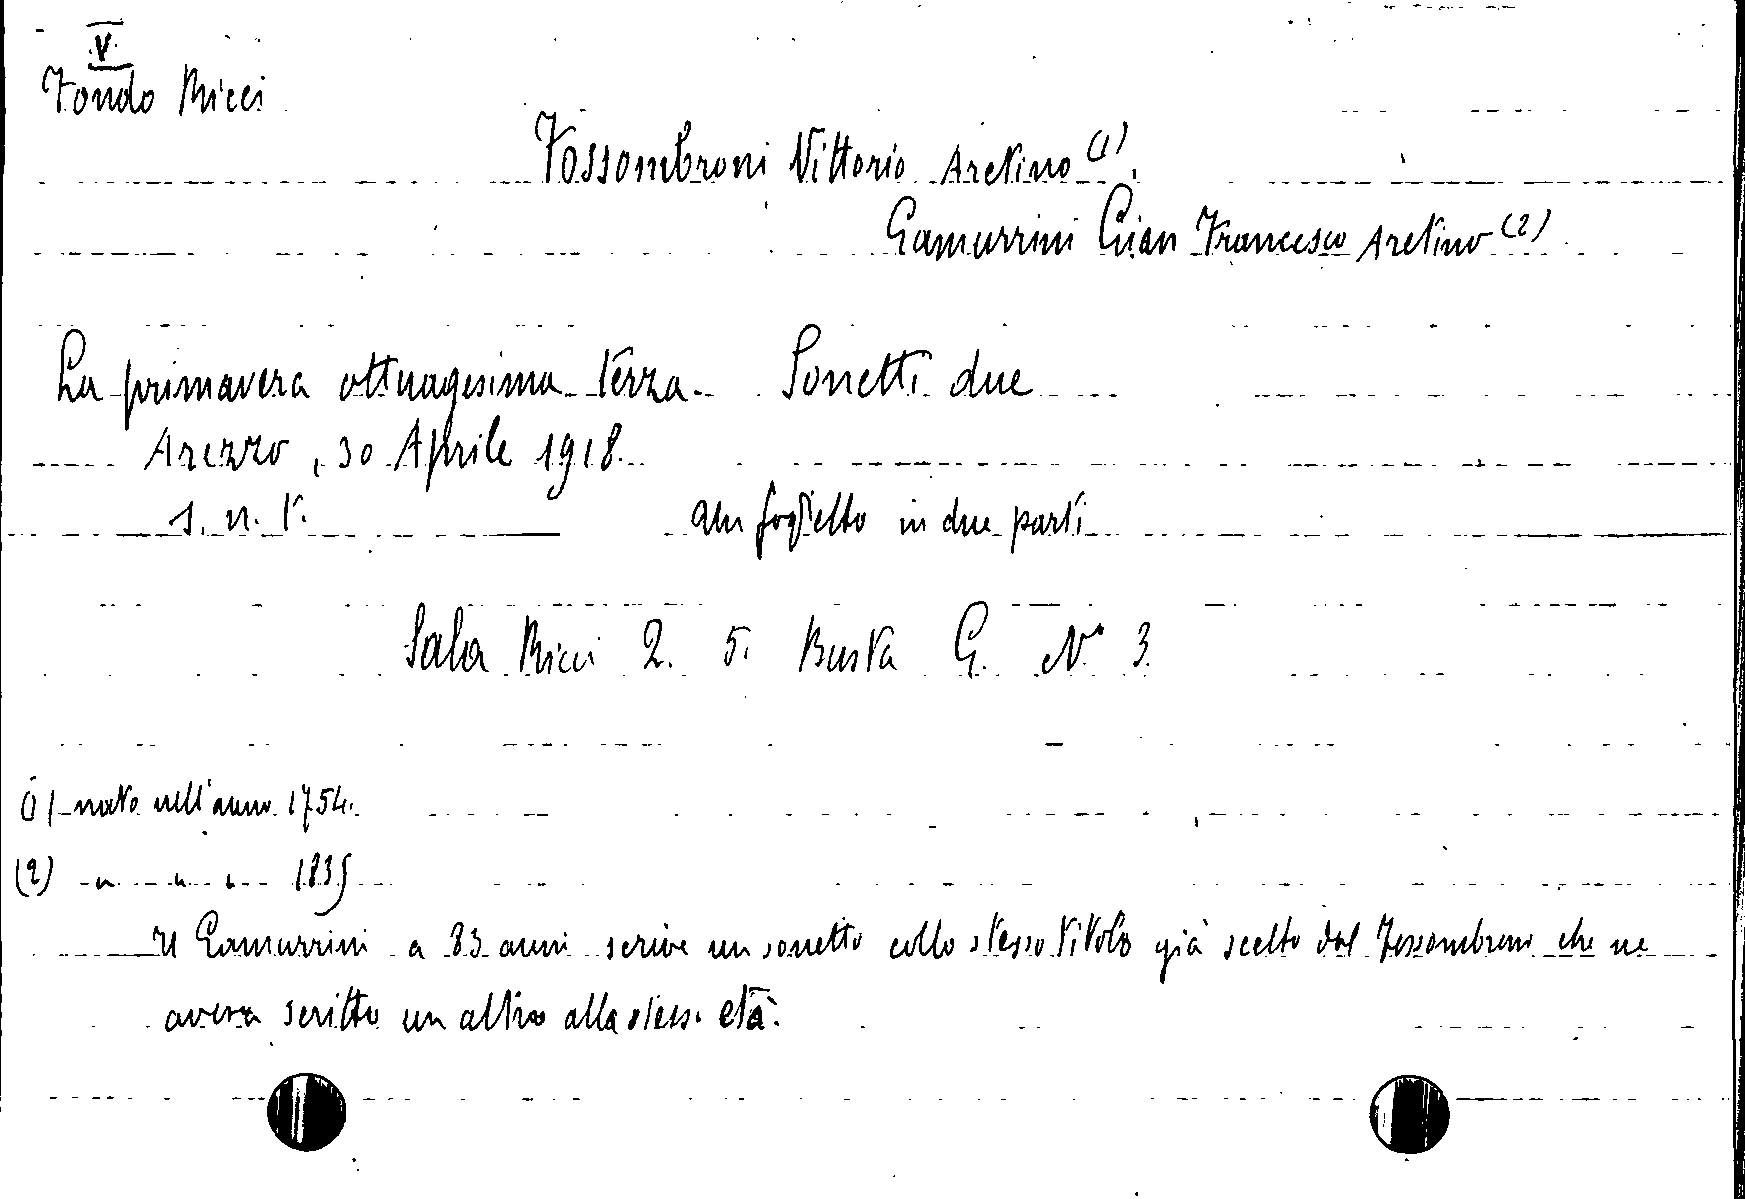 V.
Fondo Ricci
Fossombroni Vittorio Aretino (1).
Gamurrini Gian Francesco Aretino (2)
La primavera ottuagesima terza. Sonetti due
Arezzo, 30 Aprile 1918.
s. n. t. Un foglietto in due parti
Sala Ricci 2. 5. Busta G. N° 3.
(1) nato nell'anno 1754.
(2) " " " 1835
Il Gamurrini a 83 anni scrive un sonetto collo stesso titolo già scelto dal Fossombroni che ne
aveva scritto un altro alla stessa età.